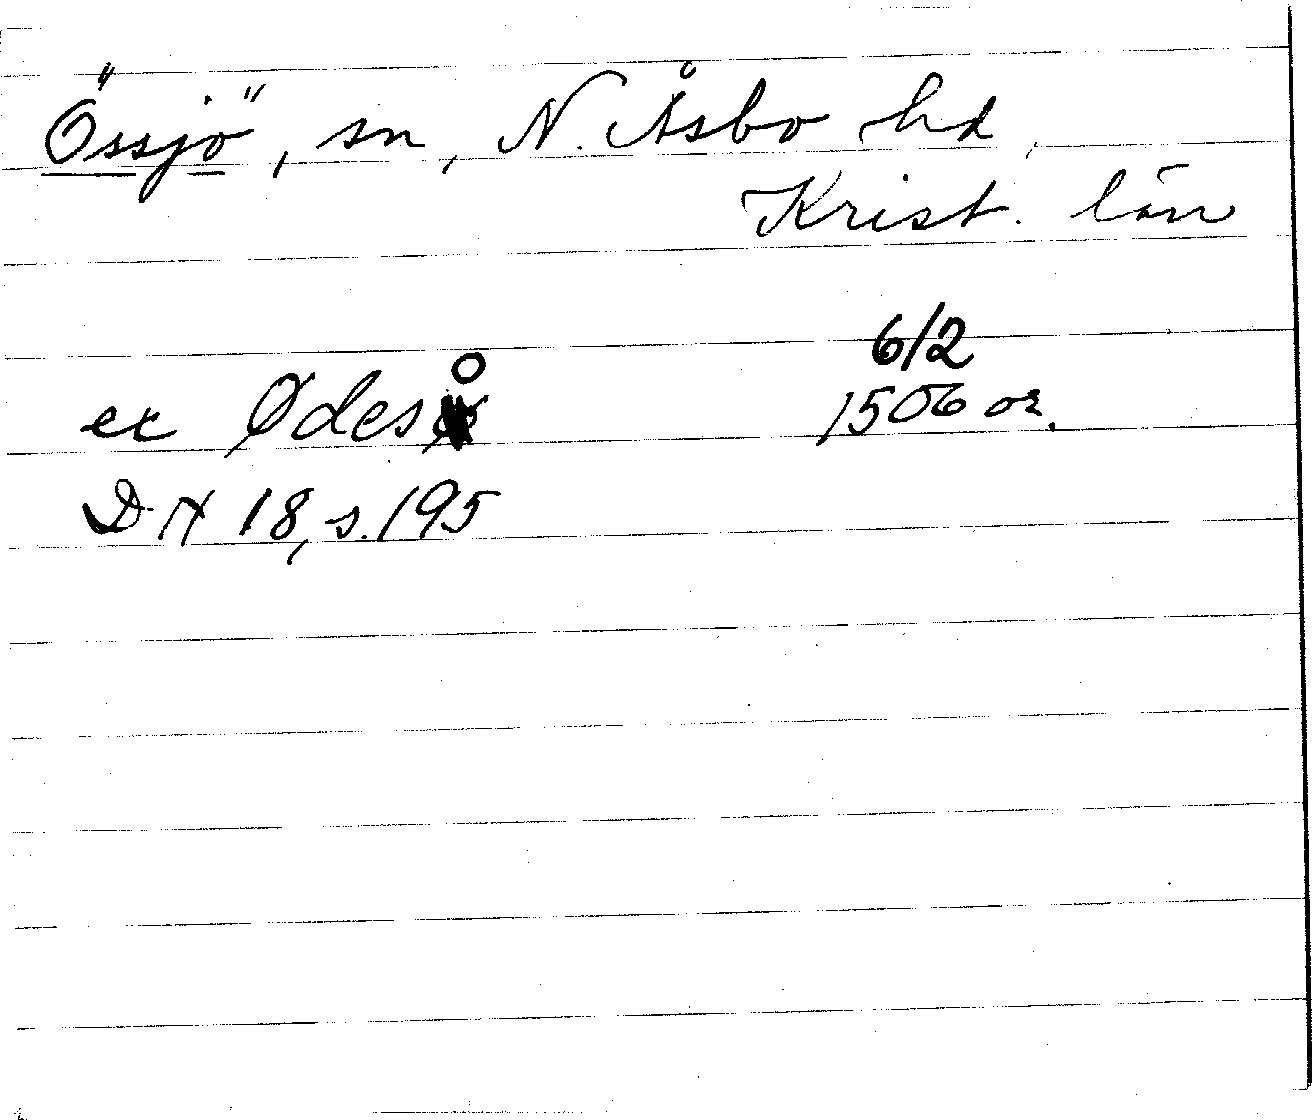 Össjö, sn, N. Åsbo hd,
Krist. län
6/2
ex Ødeså 1506 or.
DN 18, s. 195